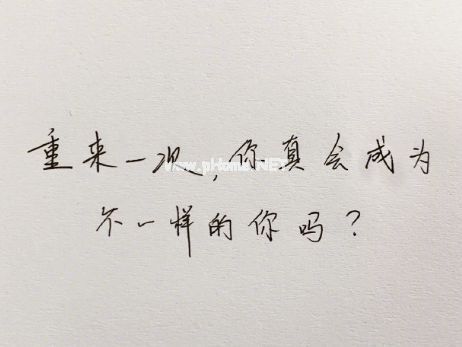 重来一次,你真会成为
www.pHome.NET
不一样的你吗?